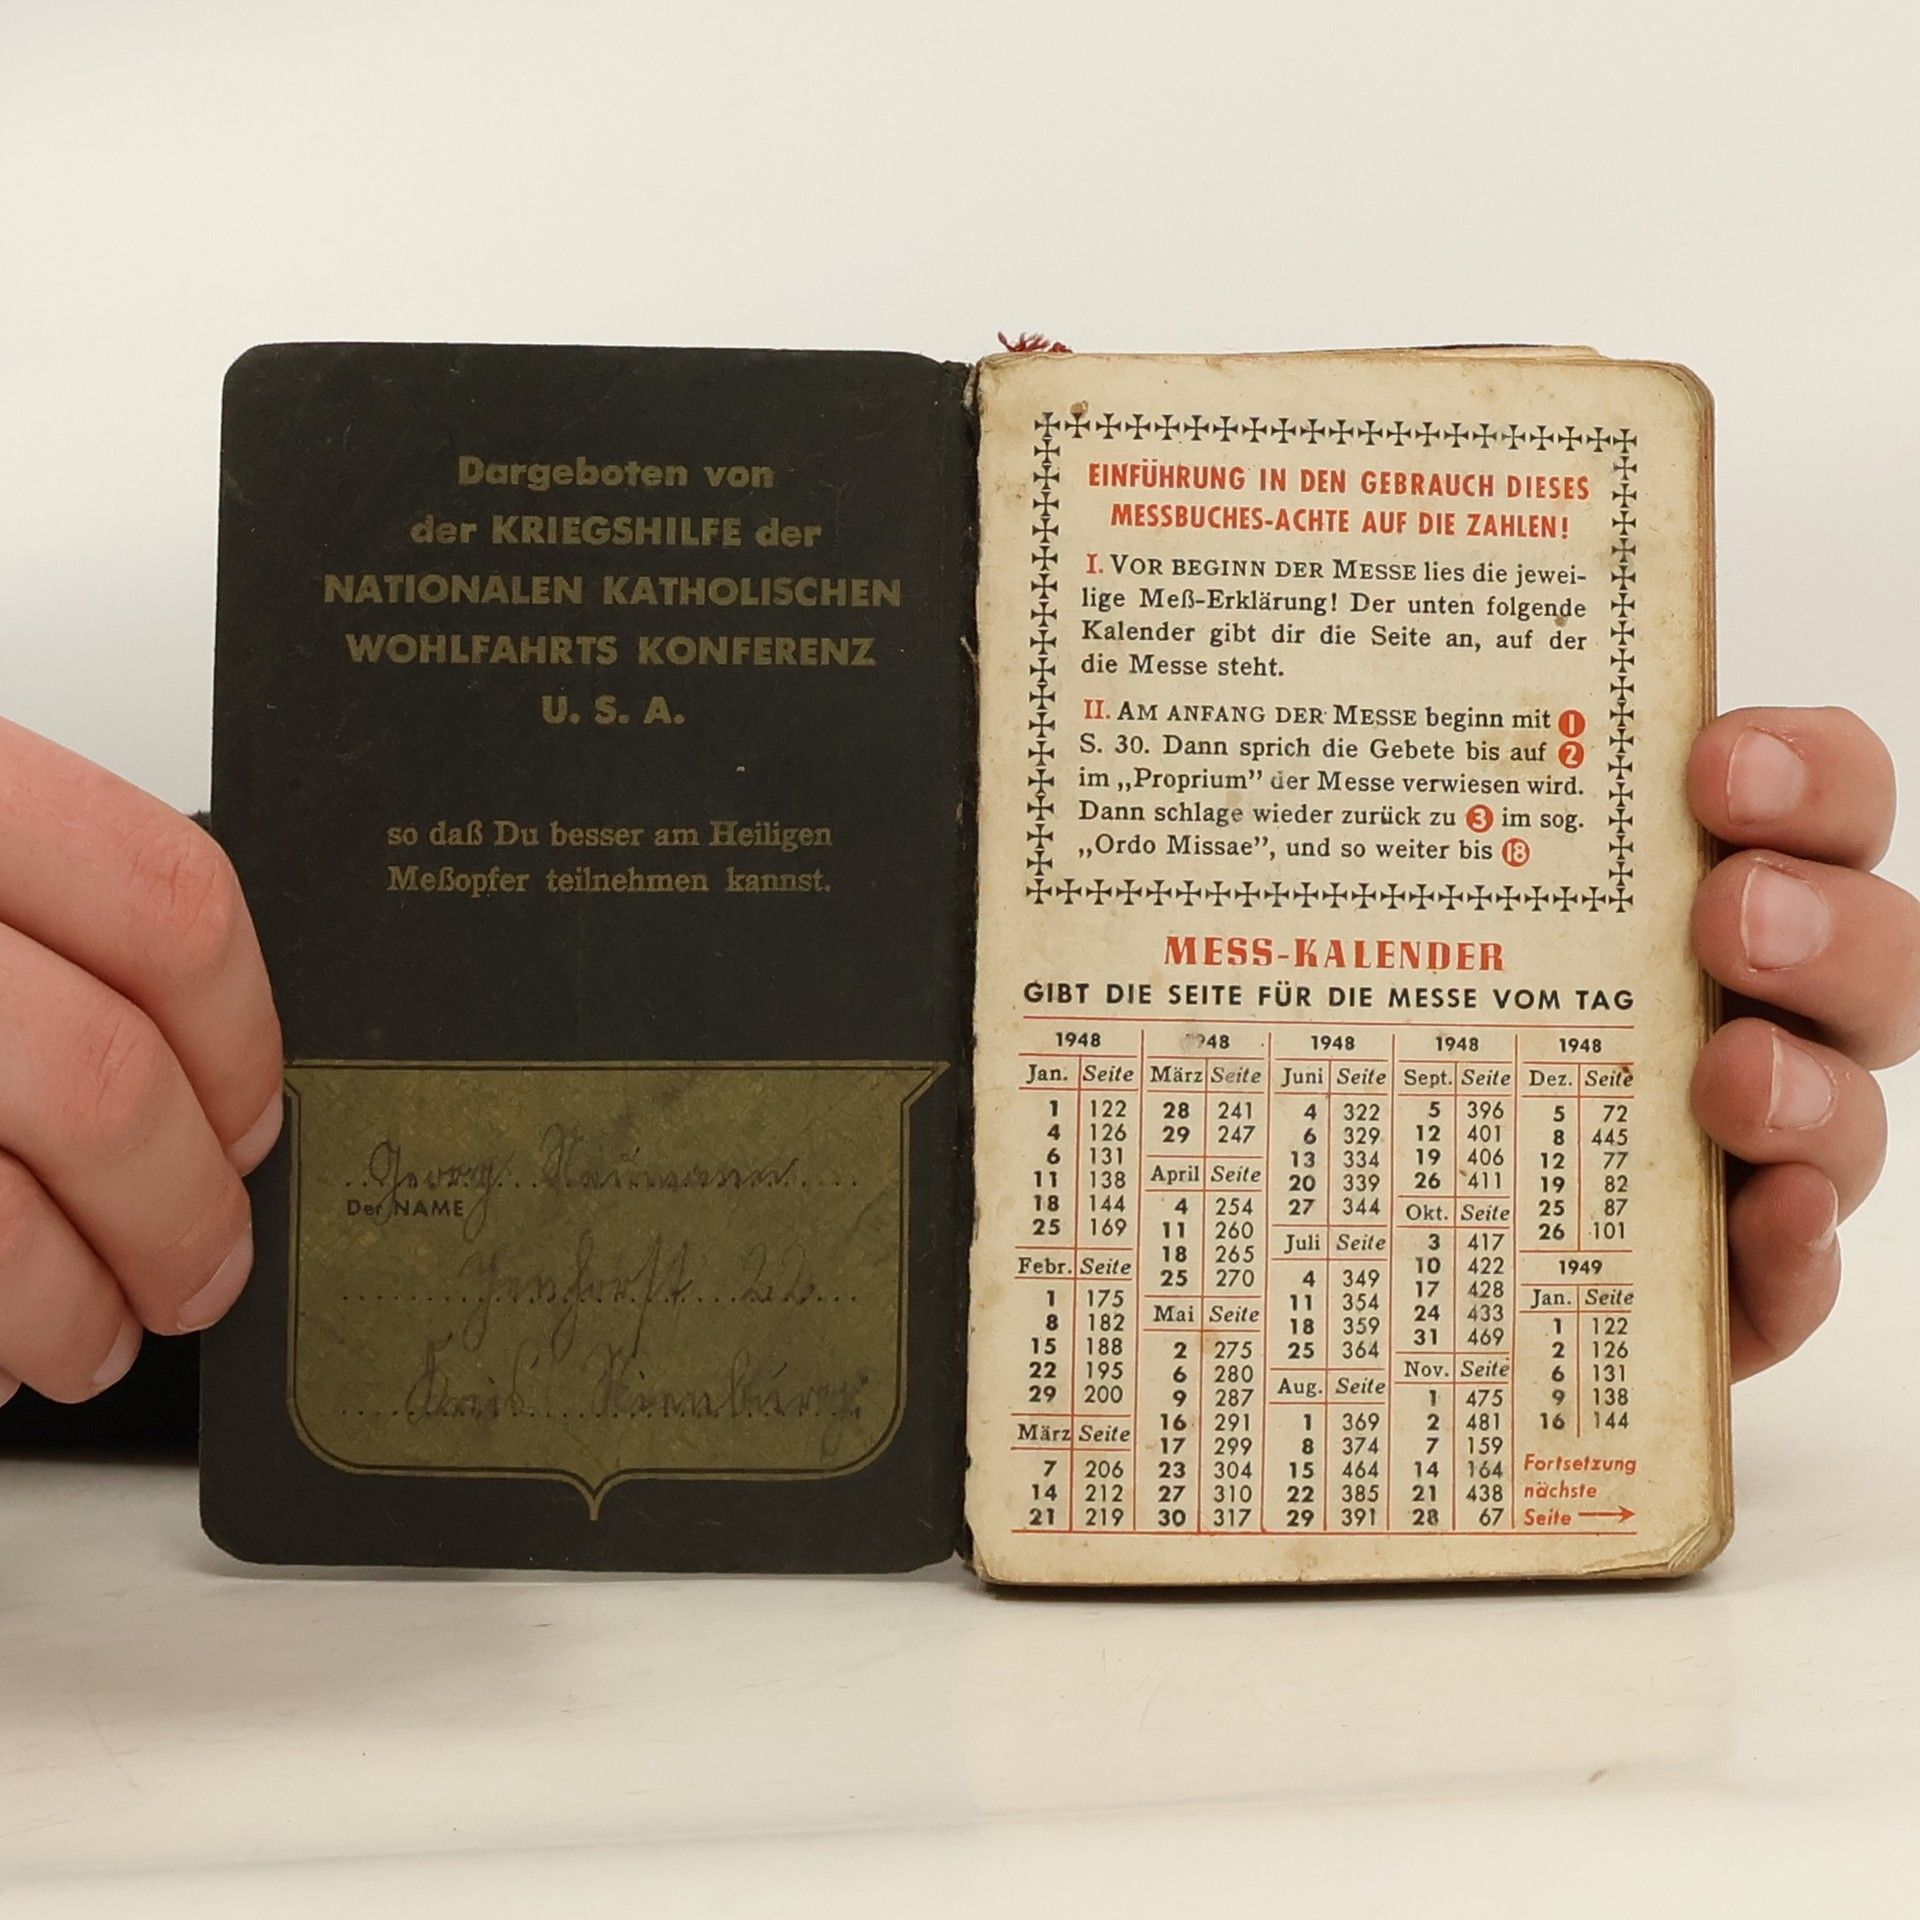 Dargeboten von
der KRIEGSHILFE der
NATIONALEN KATHOLISCHEN
WOHLFAHRTS KONFERENZ
U. S. A.
so daß Du besser am Heiligen
Meßopfer teilnehmen kannst.
Georg Naumann
Der NAME
22
Kreis Nienburg
EINFÜHRUNG IN DEN GEBRAUCH DIESES
MESSBUCHES-ACHTE AUF DIE ZAHLEN!
I. VOR BEGINN DER MESSE lies die jewei-
lige Meß-Erklärung! Der unten folgende
Kalender gibt dir die Seite an, auf der
die Messe steht.
II. AM ANFANG DER MESSE beginn mit 1
S. 30. Dann sprich die Gebete bis auf 2
im „Proprium” der Messe verwiesen wird.
Dann schlage wieder zurück zu 3 im sog.
„Ordo Missae”, und so weiter bis 18
MESS-KALENDER
GIBT DIE SEITE FÜR DIE MESSE VOM TAG
1948
Jan. Seite
1 122
4 126
6 131
11 138
18 144
25 169
Febr. Seite
1 175
8 182
15 188
22 195
29 200
März Seite
7 206
14 212
21 219
1948
März Seite
28 241
29 247
April Seite
4 254
11 260
18 265
25 270
Mai Seite
2 275
6 280
9 287
16 291
17 299
23 304
27 310
30 317
1948
Juni Seite
4 322
6 329
13 334
20 339
27 344
Juli Seite
4 349
11 354
18 359
25 364
Aug. Seite
1 369
8 374
15 464
22 385
29 391
1948
Sept. Seite
5 396
12 401
19 406
26 411
Okt. Seite
3 417
10 422
17 428
24 433
31 469
Nov. Seite
1 475
2 481
7 159
14 164
21 438
28 67
1948
Dez. Seite
5 72
8 445
12 77
19 82
25 87
26 101
1949
Jan. Seite
1 122
2 126
6 131
9 138
16 144
Fortsetzung
nächste
Seite →